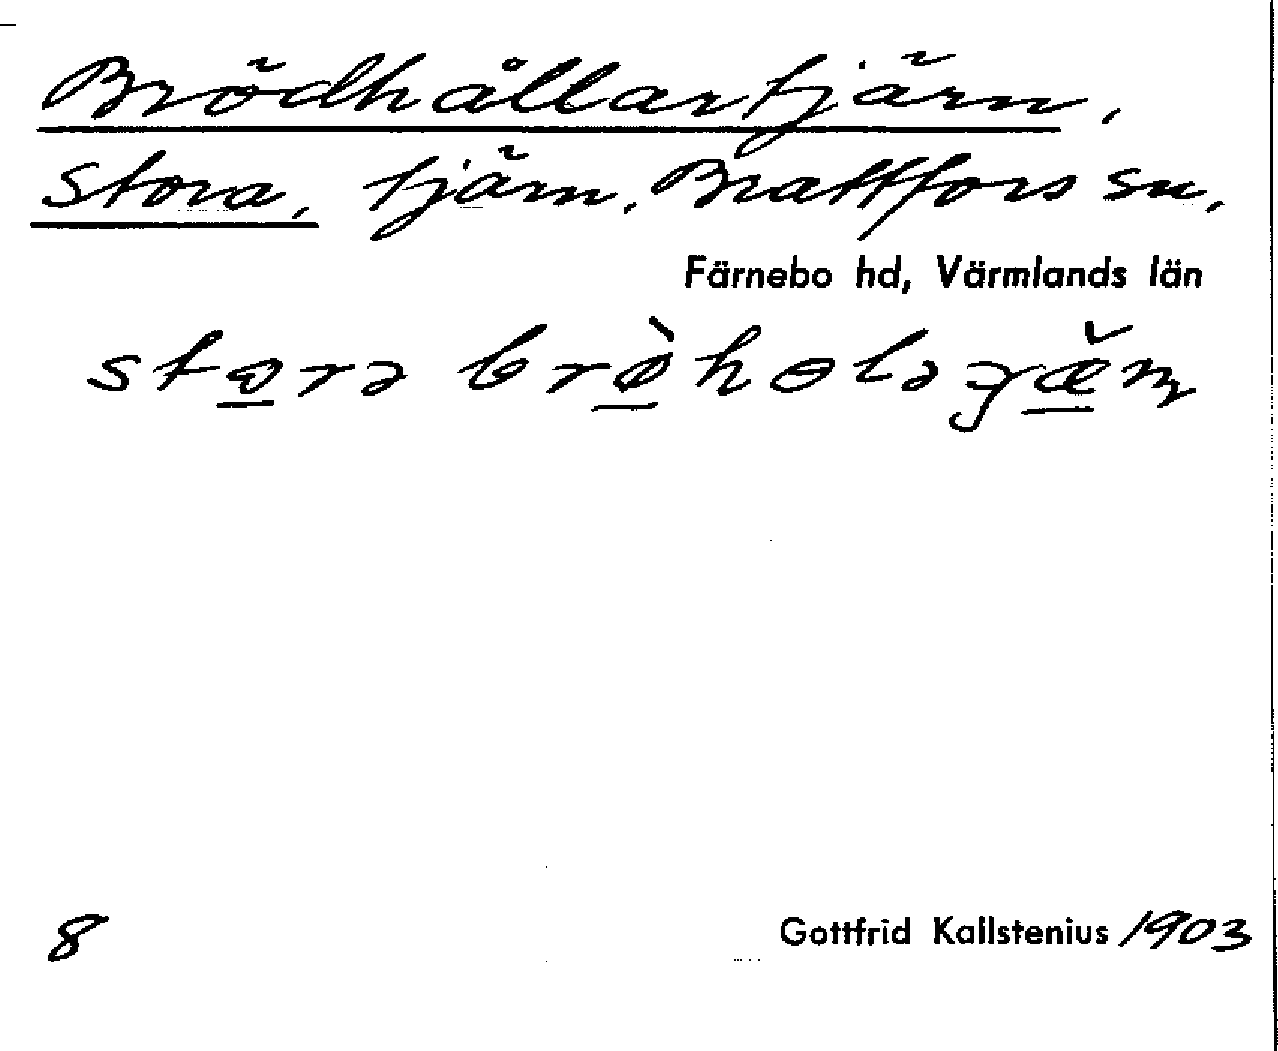 Brödhållartjärn,
Stora, tjärn, Brattfors sn,
Färnebo hd, Värmlands län
8
Gottfrid Kallstenius /1903